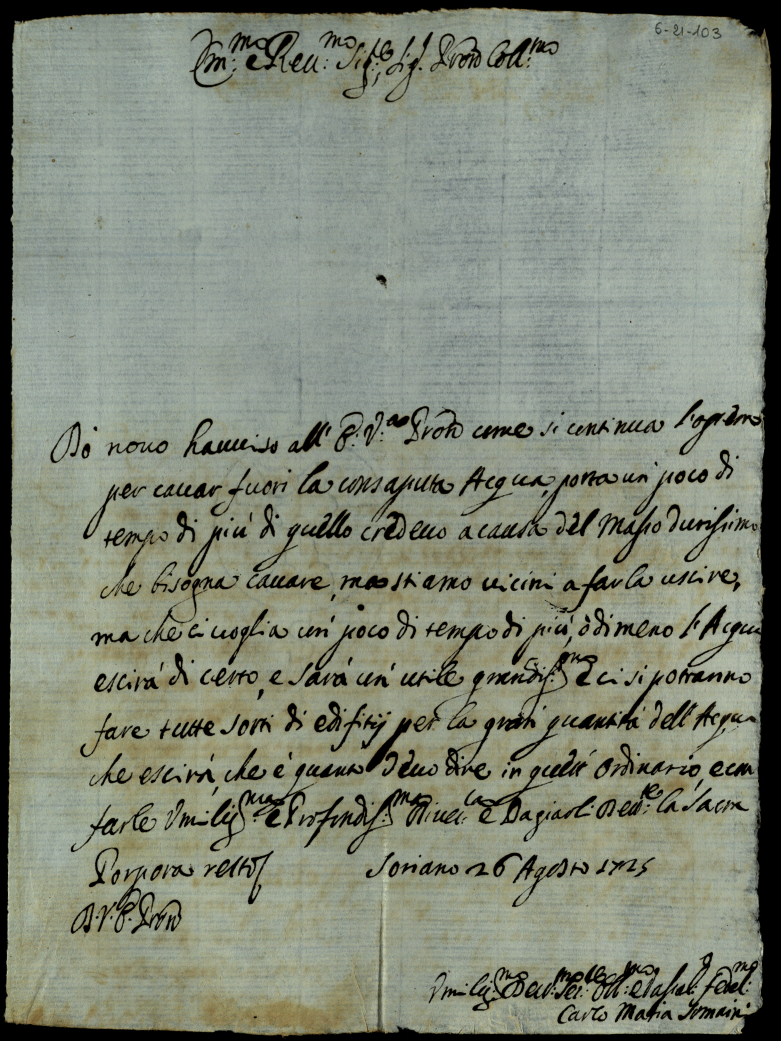 6-21-103
Em:mo e Reu:mo Sig:re, Sig. Prõn Coll:mo
Dò novo hauuiso all' E: V:za Prõn come si continua l'opra
per cauar fuori la consaputa Acqua, porta un' poco di
tempo di più di quello credeuo a causa del Masso durissimo
che bisogna cauare, ma stiamo uicini a farla uscire,
ma che ci uoglia un' poco di tempo di più, ò di meno l'Acqua
escirà di certo, e sarà un' utile grandis:mo E ci si potranno
fare tutte sorti di edifitij per la gran quantità dell'Acqua
che escirà, che è quanto deuo dire in quest' ordinario, e con
farle Vmilis:ma e Profondis:ma Riuer:za e Bagiarli la Sacra
Porpora resto
Soriano 26 Agosto 1725
D. V. E. Prõn
Vmilis:mo Deuo:mo Ser:re Obl:mo
Carlo Maria